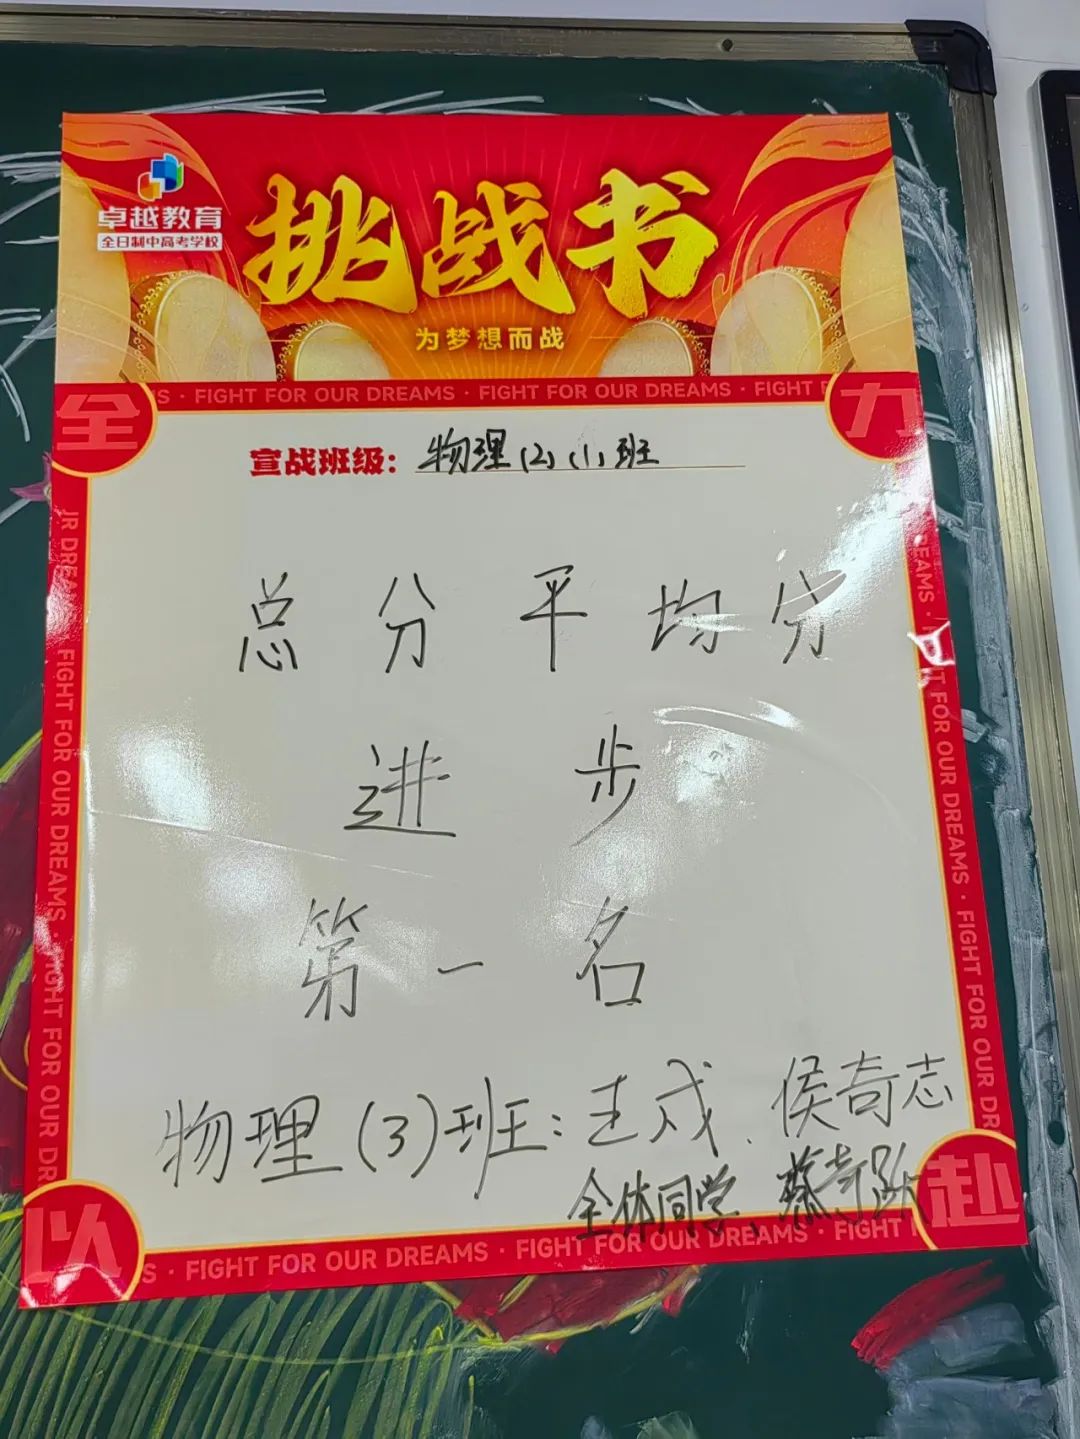 卓越教育
全日制中高考学校
挑战书
为梦想而战
S · FIGHT FOR OUR DREAMS · FIGHT FOR OUR DREAMS · FIGHT F
全
力
宣战班级：物理(2)(1)班
总分平均分
进步
第一名
物理(3)班：王戍、侯奇志
全体同学、蔡奇
以
赴
UR DREAMS · FIGHT FOR OUR DREAMS · FIGHT FOR OUR DR
EAMS · FIGHT FOR OUR DREAMS · FIGHT FOR OUR DR
S · FIGHT FOR OUR DREAMS · FIGHT FOR OUR DREAMS · FIGHT